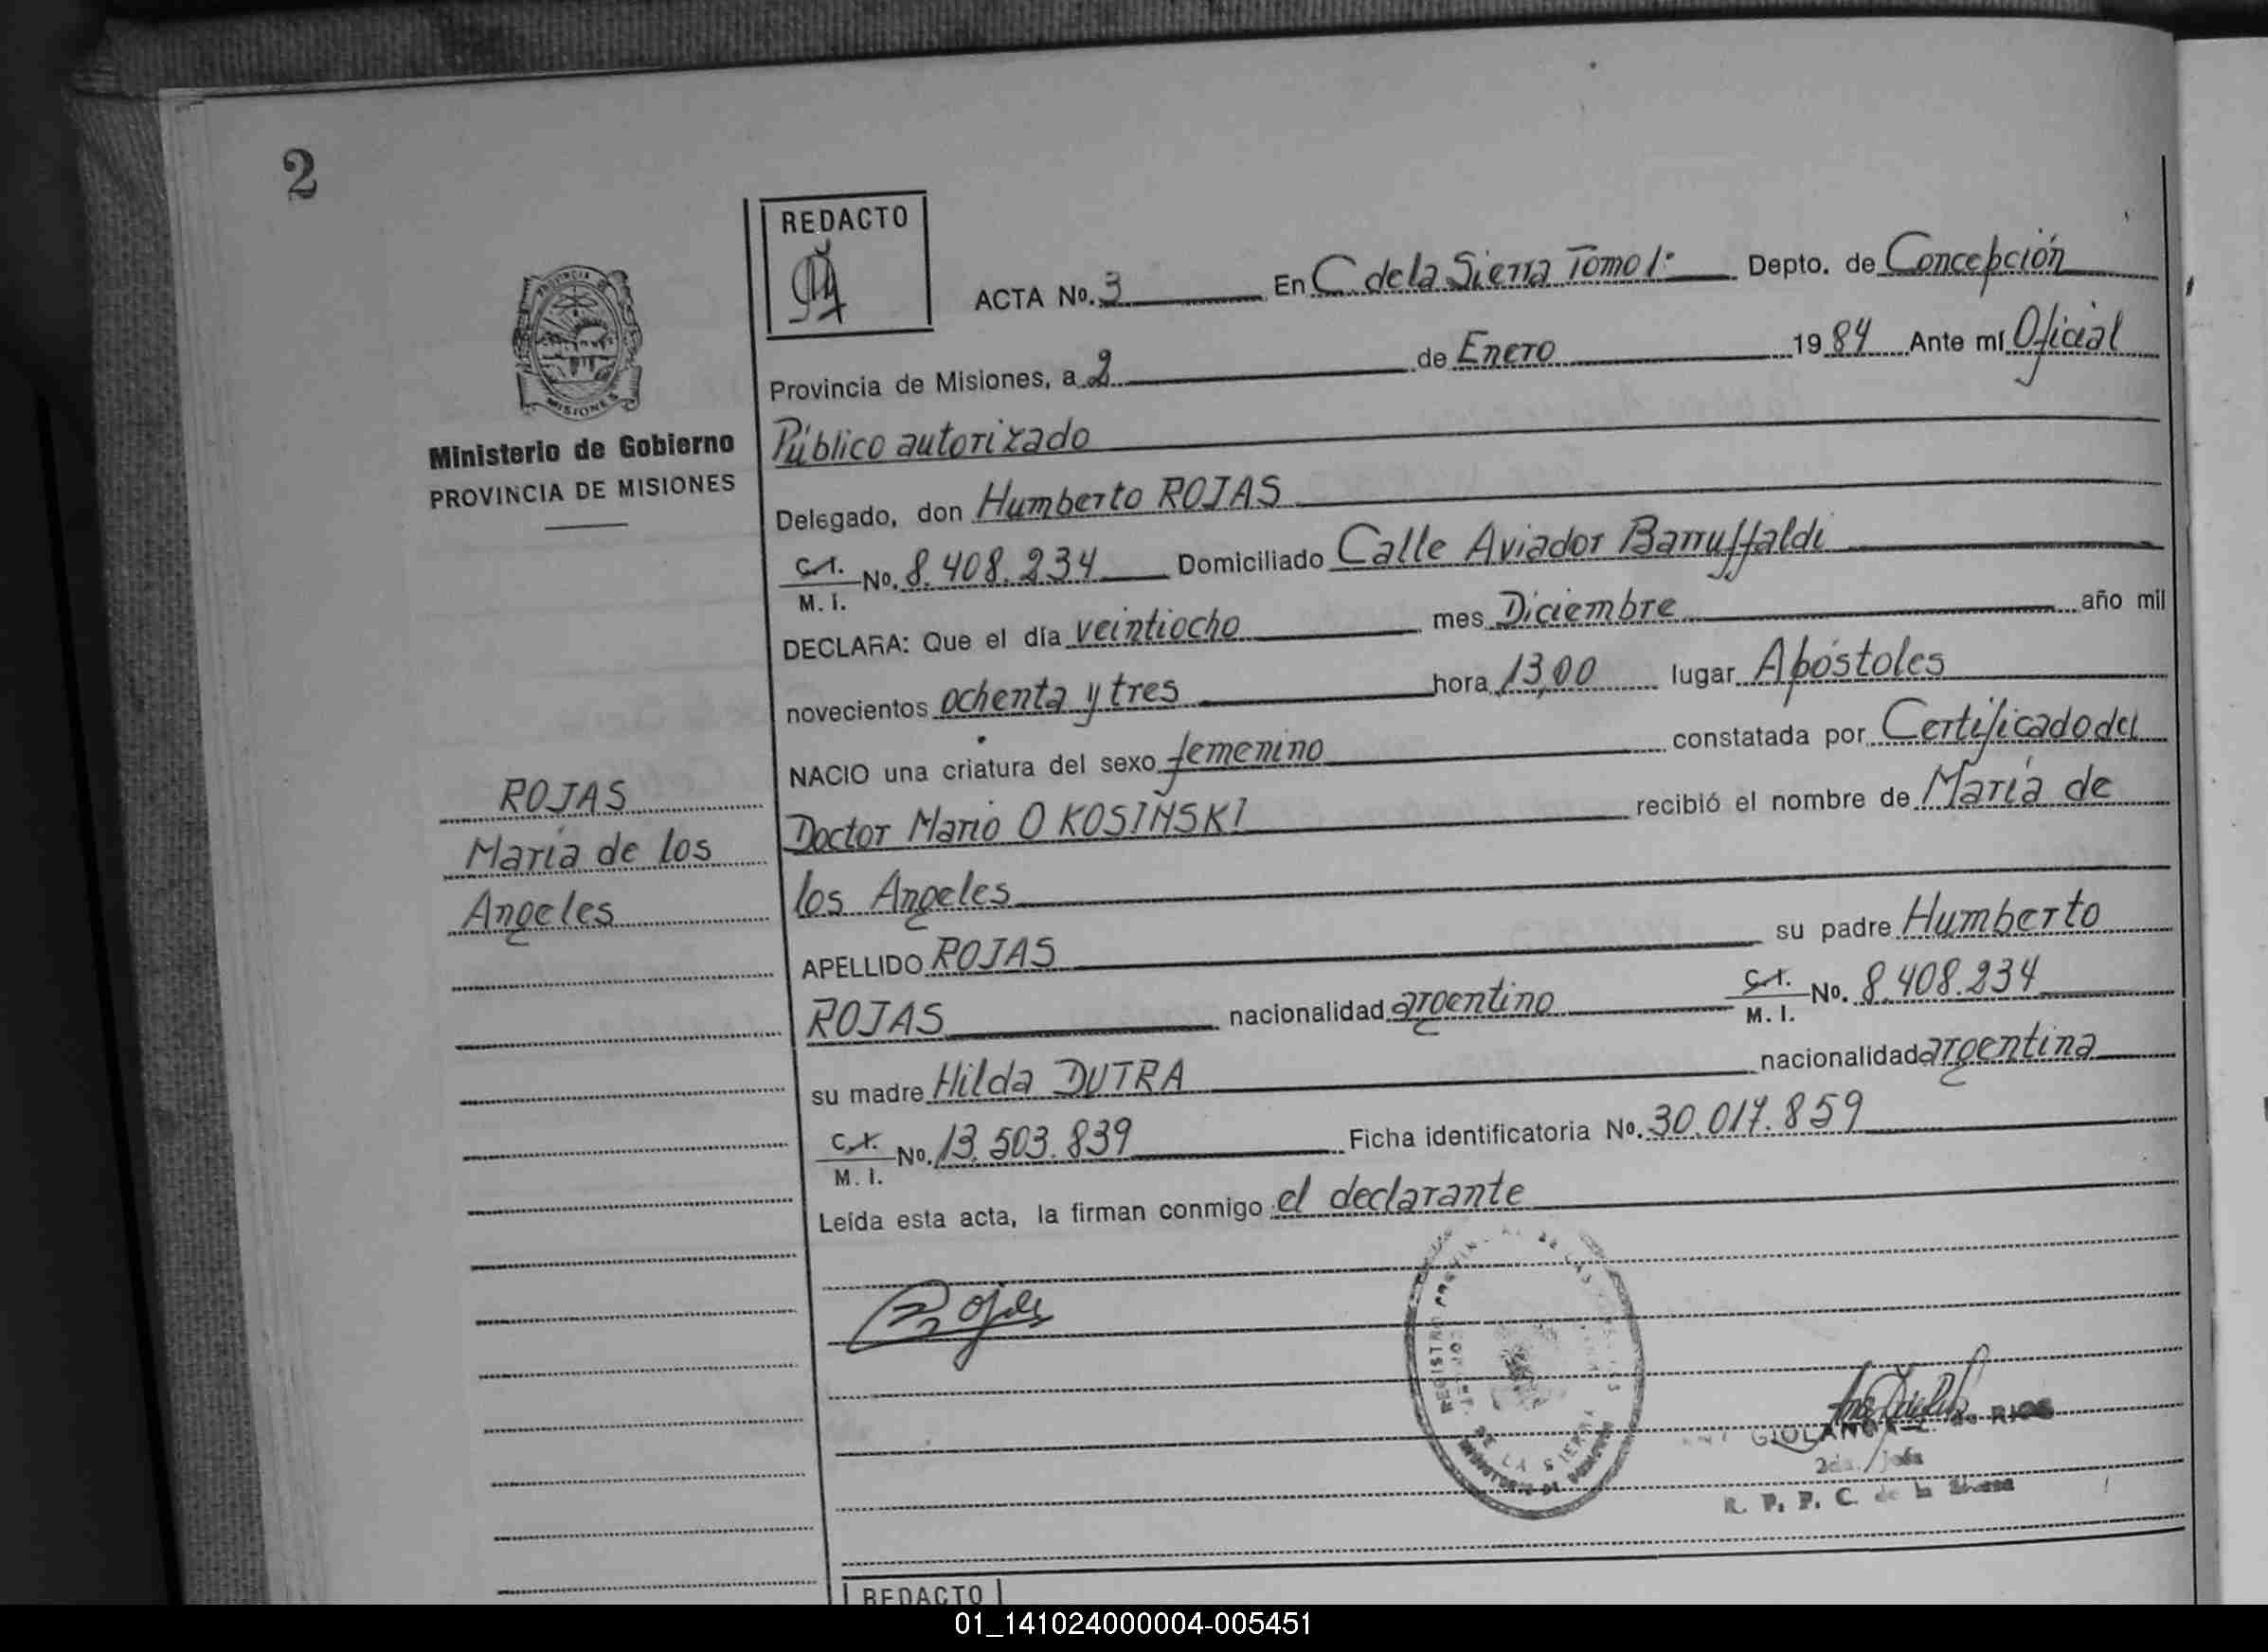 2
REDACTO
ACTA No. 3 En C. de la Sierra Tomo 1: Depto. de Concepción
Provincia de Misiones, a 2 de Enero 1984 Ante mí Oficial
Público autorizado
Ministerio de Gobierno
PROVINCIA DE MISIONES
Delegado, don Humberto ROJAS
C.I. M.I. No. 8.408.234 Domiciliado Calle Aviador Barruffaldi
DECLARA: Que el día veintiocho mes Diciembre año mil
novecientos ochenta y tres hora 13,00 lugar Apóstoles
NACIO una criatura del sexo femenino constatada por Certificado del
Doctor Mario O KOSIÑSKI recibió el nombre de María de
los Angeles
ROJAS
María de los
Angeles
APELLIDO ROJAS su padre Humberto
ROJAS nacionalidad argentino C.I. M.I. No. 8.408.234
su madre Hilda DUTRA nacionalidad argentina
C.I. M.I. No. 13.503.839 Ficha identificatoria No. 30.017.859
Leída esta acta, la firman conmigo el declarante
Rojas
REGISTRO
DE LA SIERRA
de RIOS
2da. Jefa
R. P. P. C. de la Sierra
REDACTO
01_141024000004-005451